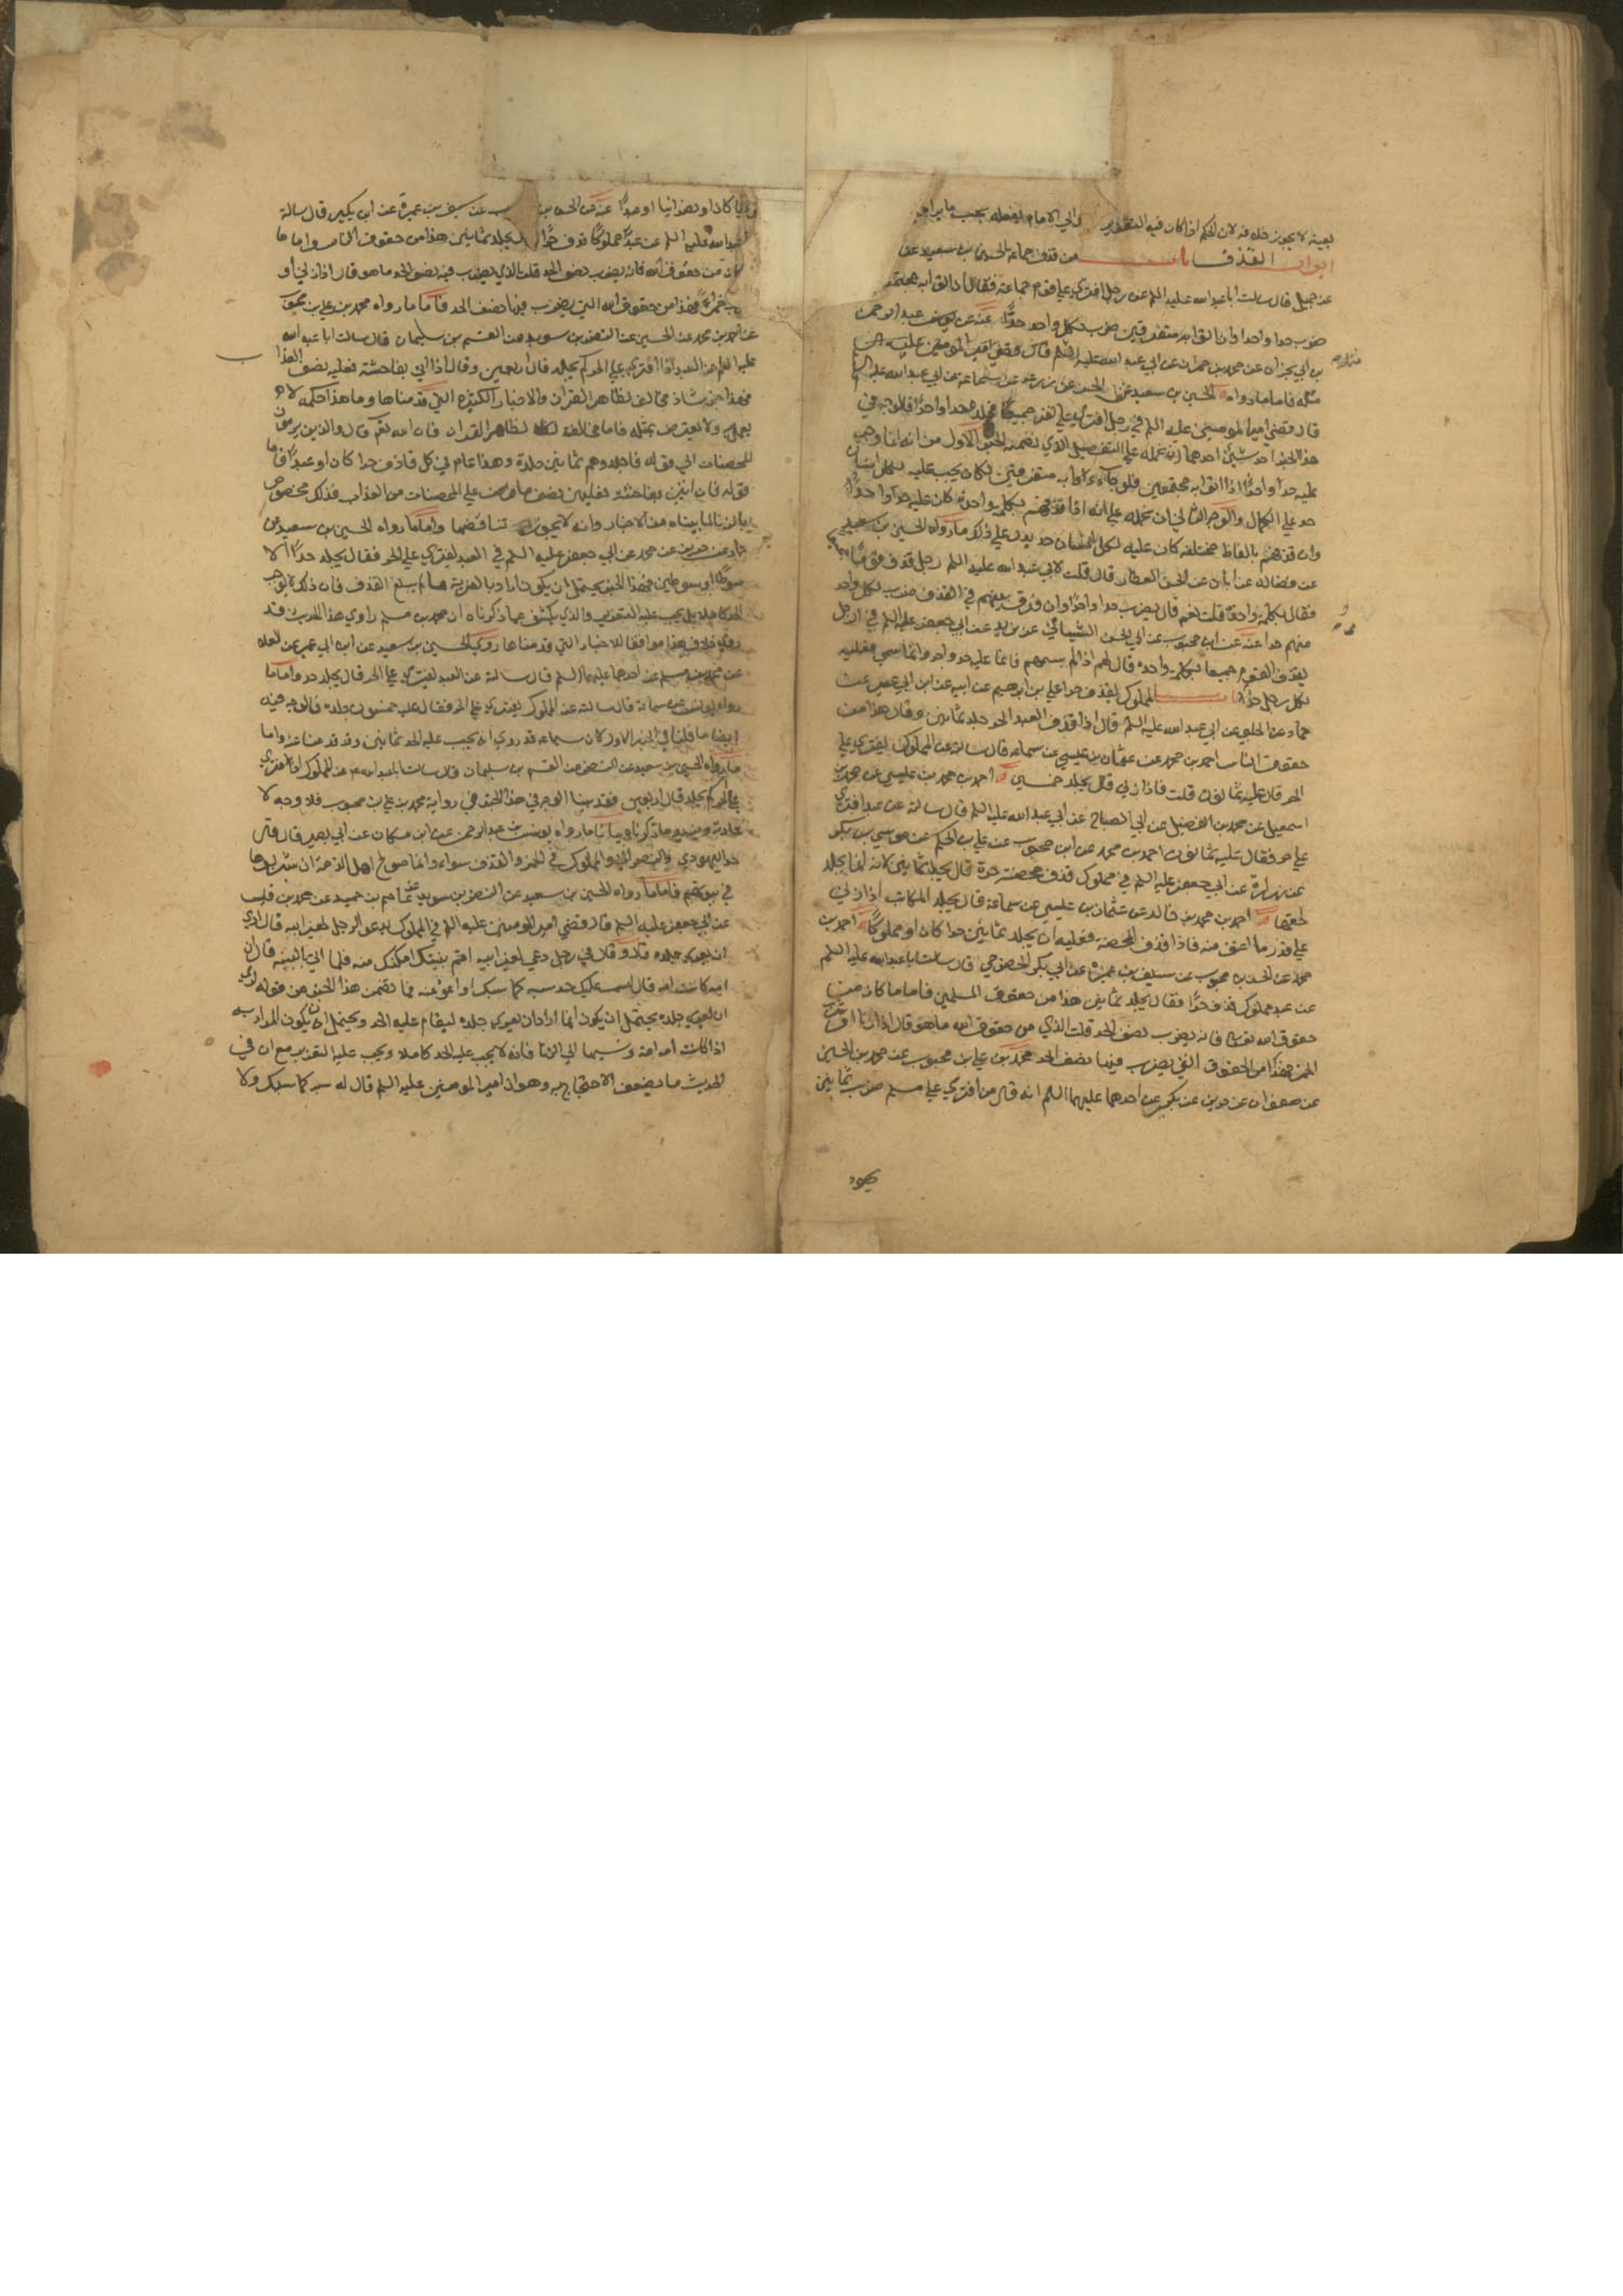 بعينه لا يجوز خلافه لان الحكم اذا كان فيه التعزير الى الامام يفعله بحسب ما يراه
ابواب القذف باب من قذف جماعة الحسين بن سعيد عن
عن جميل قال سالت ابا عبد الله عليه السلم عن رجل افترى على قوم جماعة فقال اذا اتوا به مجتمعين
ضرب حدا واحدا وان اتوا به متفرقين ضرب لكل واحد حدا عنه عن عبد الرحمن
بن ابي نجران عن محمد بن حمران عن ابي عبد الله عليه السلم
مثله فاما ما رواه الحسين بن سعيد عن الحسن عن زرعه عن سماعة عن ابي عبد الله عليه السلم
قال قضى امير المومنين عليه السلم في رجل افترى على نفر جميعا فجلده حدا واحدا فلا وجه في
هذا الخبر احد شيئين احدهما ان نحمله على التفصيل الذي تضمنه الخبر الاول من انه انما وجب
عليه حدا واحدا اذا اتوا به مجتمعين فلو جاءوا به متفرقين لكان يجب عليه لكل انسان
حد على الكمال والوجه الثاني ان نحمله على انه اذا قذفهم بكلمة واحدة كان عليه حدا واحدا
وان قذفهم بالفاظ مختلفة كان عليه لكل انسان حد يدل على ذلك ما رواه الحسين بن سعيد
عن فضالة عن ابان عن الحسن العطار قال قلت لابي عبد الله عليه السلم رجل قذف قوما
فقال بكلمة واحدة قلت نعم قال يضرب حدا واحدا وان فرق بينهم في القذف ضرب لكل واحد
منهم حدا عنه عن ابن محبوب عن ابي الحسن الشيباني عن بريد عن ابي جعفر عليه السلم في الرجل
يقذف القوم جميعا بكلمة واحدة قال لهم اذا لم يسمهم فانما عليه حد واحد وان سمى فعليه
لكل رجل حدا باب المملوك يقذف حرا علي بن ابرهيم عن ابيه عن ابن ابي عمير عن
حماد عن الحلبي عن ابي عبد الله عليه السلم قال اذا قذف العبد الحر جلد ثمانين وقال هذا من
حقوق الناس احمد بن محمد عن عثمان بن عيسى عن سماعة قال سالته عن المملوك يفتري على
الحر قال عليه ثمانون قلت فاذا زنى قال يجلد خمسين احمد بن محمد بن عيسى عن محمد بن
اسمعيل عن محمد بن الفضيل عن ابي الصباح عن ابي عبد الله عليه السلم قال سالته عن عبد افترى
على حر فقال عليه ثمانون احمد بن محمد عن ابن محبوب عن علي بن الحكم عن موسى بن بكر
عن زرارة عن ابي جعفر عليه السلم في مملوك قذف محصنة حرة قال يجلد ثمانين لانه انما يجلد
لحقها احمد بن محمد بن خالد عن عثمان بن عيسى عن سماعة قال يجلد المكاتب اذا زنى
على قدر ما اعتق منه فاذا قذف المحصنة فعليه ان يجلد ثمانين حرا كان او مملوكا احمد بن
محمد عن الحسن بن محبوب عن سيف بن عميرة عن ابي بكر الحضرمي قال سالت ابا عبد الله عليه السلم
عن عبد مملوك قذف حرا فقال يجلد ثمانين هذا من حقوق المسلمين فاما ما كان من
حقوق الله فانه يضرب نصف الحد قلت الذي من حقوق الله ما هو قال اذا زنا او شرب
الخمر فهذا من الحقوق التي يضرب فيها نصف الحد محمد بن علي بن محبوب عن محمد بن الحسين
عن صفوان عن حريز عن بكير عن احدهما عليهما السلم انه قال من افترى على مسلم ضرب ثمانين
يهود
يهوديا كان او نصرانيا او عبدا عنه عن الحسن بن محبوب عن سيف بن عميرة عن ابن بكير قال سالت
ابا عبد الله عليه السلم عن عبد مملوك قذف حرا قال يجلد ثمانين هذا من حقوق الناس واما ما
كان من حقوق الله فانه يضرب نصف الحد قلت الذي يضرب فيه نصف الحد ما هو قال اذا زنى او
شرب خمرا فهذا من حقوق الله التي يضرب فيها نصف الحد فاما ما رواه محمد بن علي بن محبوب
عن احمد بن محمد عن الحسين عن النضر بن سويد عن القسم بن سليمان قال سالت ابا عبد الله
عليه السلم عن العبد اذا افترى على الحر كم يجلد قال اربعين وقال اذا اتى بفاحشة فعليه نصف العذاب
فهذا خبر شاذ مخالف لظاهر القران والاخبار الكثيرة التي قدمناها وما هذا حكمه لا
يعمل به ولا يعترض بمثله فاما مخالفته لظاهر القران فان الله تعالى قال والذين يرمون
المحصنات الى قوله فاجلدوهم ثمانين جلدة وهذا عام في كل قاذف حرا كان او عبدا فاما
قوله فان اتين بفاحشة فعليهن نصف ما على المحصنات من العذاب فذلك مخصوص
بالزنا لما بيناه من الاخبار وانه لا يجوز تناقضها واما ما رواه الحسين بن سعيد عن
حماد عن حريز عن محمد عن ابي جعفر عليه السلم في العبد يفتري على الحر فقال يجلد حدا الا
سوطا او سوطين فهذا الخبر يحتمل ان يكون اراد بالفرية ما لم يبلغ القذف فان ذلك لا يوجب
الحد كاملا بل يجب عليه التعزير والذي يكشف عما ذكرناه ان محمد بن مسلم راوي هذا الحديث قد
روى خلاف هذا موافقا للاخبار التي قدمناها روى الحسين بن سعيد عن ابن ابي عمير عن العلاء
عن محمد بن مسلم عن احدهما عليهما السلم قال سالته عن العبد يفتري على الحر قال يجلد حدا واما ما
رواه يونس عن سماعة قال سالته عن المملوك يفتري على الحر فقال عليه خمسون جلدة فالوجه فيه
ايضا ما قلناه في الخبر الاول كان سماعة قد روى انه يجب عليه الحد ثمانين وقد قدمنا عنه واما
ما رواه الحسين بن سعيد عن النضر عن القسم بن سليمان قال سالت ابا عبد الله ع عن المملوك اذا افترى
على الحر كم يجلد قال اربعين فقد بينا الوجه في هذا الخبر في رواية محمد بن علي بن محبوب فلا وجه لا
عادته ويزيد ما ذكرناه بيانا ما رواه يونس بن عبد الرحمن عن ابن مسكان عن ابي بصير قال قال
حد اليهودي والنصراني والمملوك في الخمر والفرية سواء وانما صولح اهل الذمة ان يشربوها
في بيوتهم فاما ما رواه الحسين بن سعيد عن النضر بن سويد عن عاصم بن حميد عن محمد بن قيس
عن ابي جعفر عليه السلم قال قضى امير المومنين عليه السلم في المملوك يدعو الرجل لغير ابيه قال ارى
ان يعرى جلده قال وقال في رجل دعي لغير ابيه اقم بينتك امكنك منه فلما اتى بالبينة قال ان
امه كانت امة قال ليس عليك حد سبه كما سبك او اعف عنه فما تضمن هذا الخبر من قوله ارى
ان يعرى جلده يحتمل ان يكون انما اراد ان يعرى جلده ليقام عليه الحد ويحتمل ان يكون المراد به
اذا كانت امه امة ونسبها الى الزنا فانه لا يجب عليه الحد كاملا ويجب عليه التعزير مع ان في
الحديث ما يضعف الاحتجاج به وهو ان امير المومنين عليه السلم قال له سبه كما سبك ولا